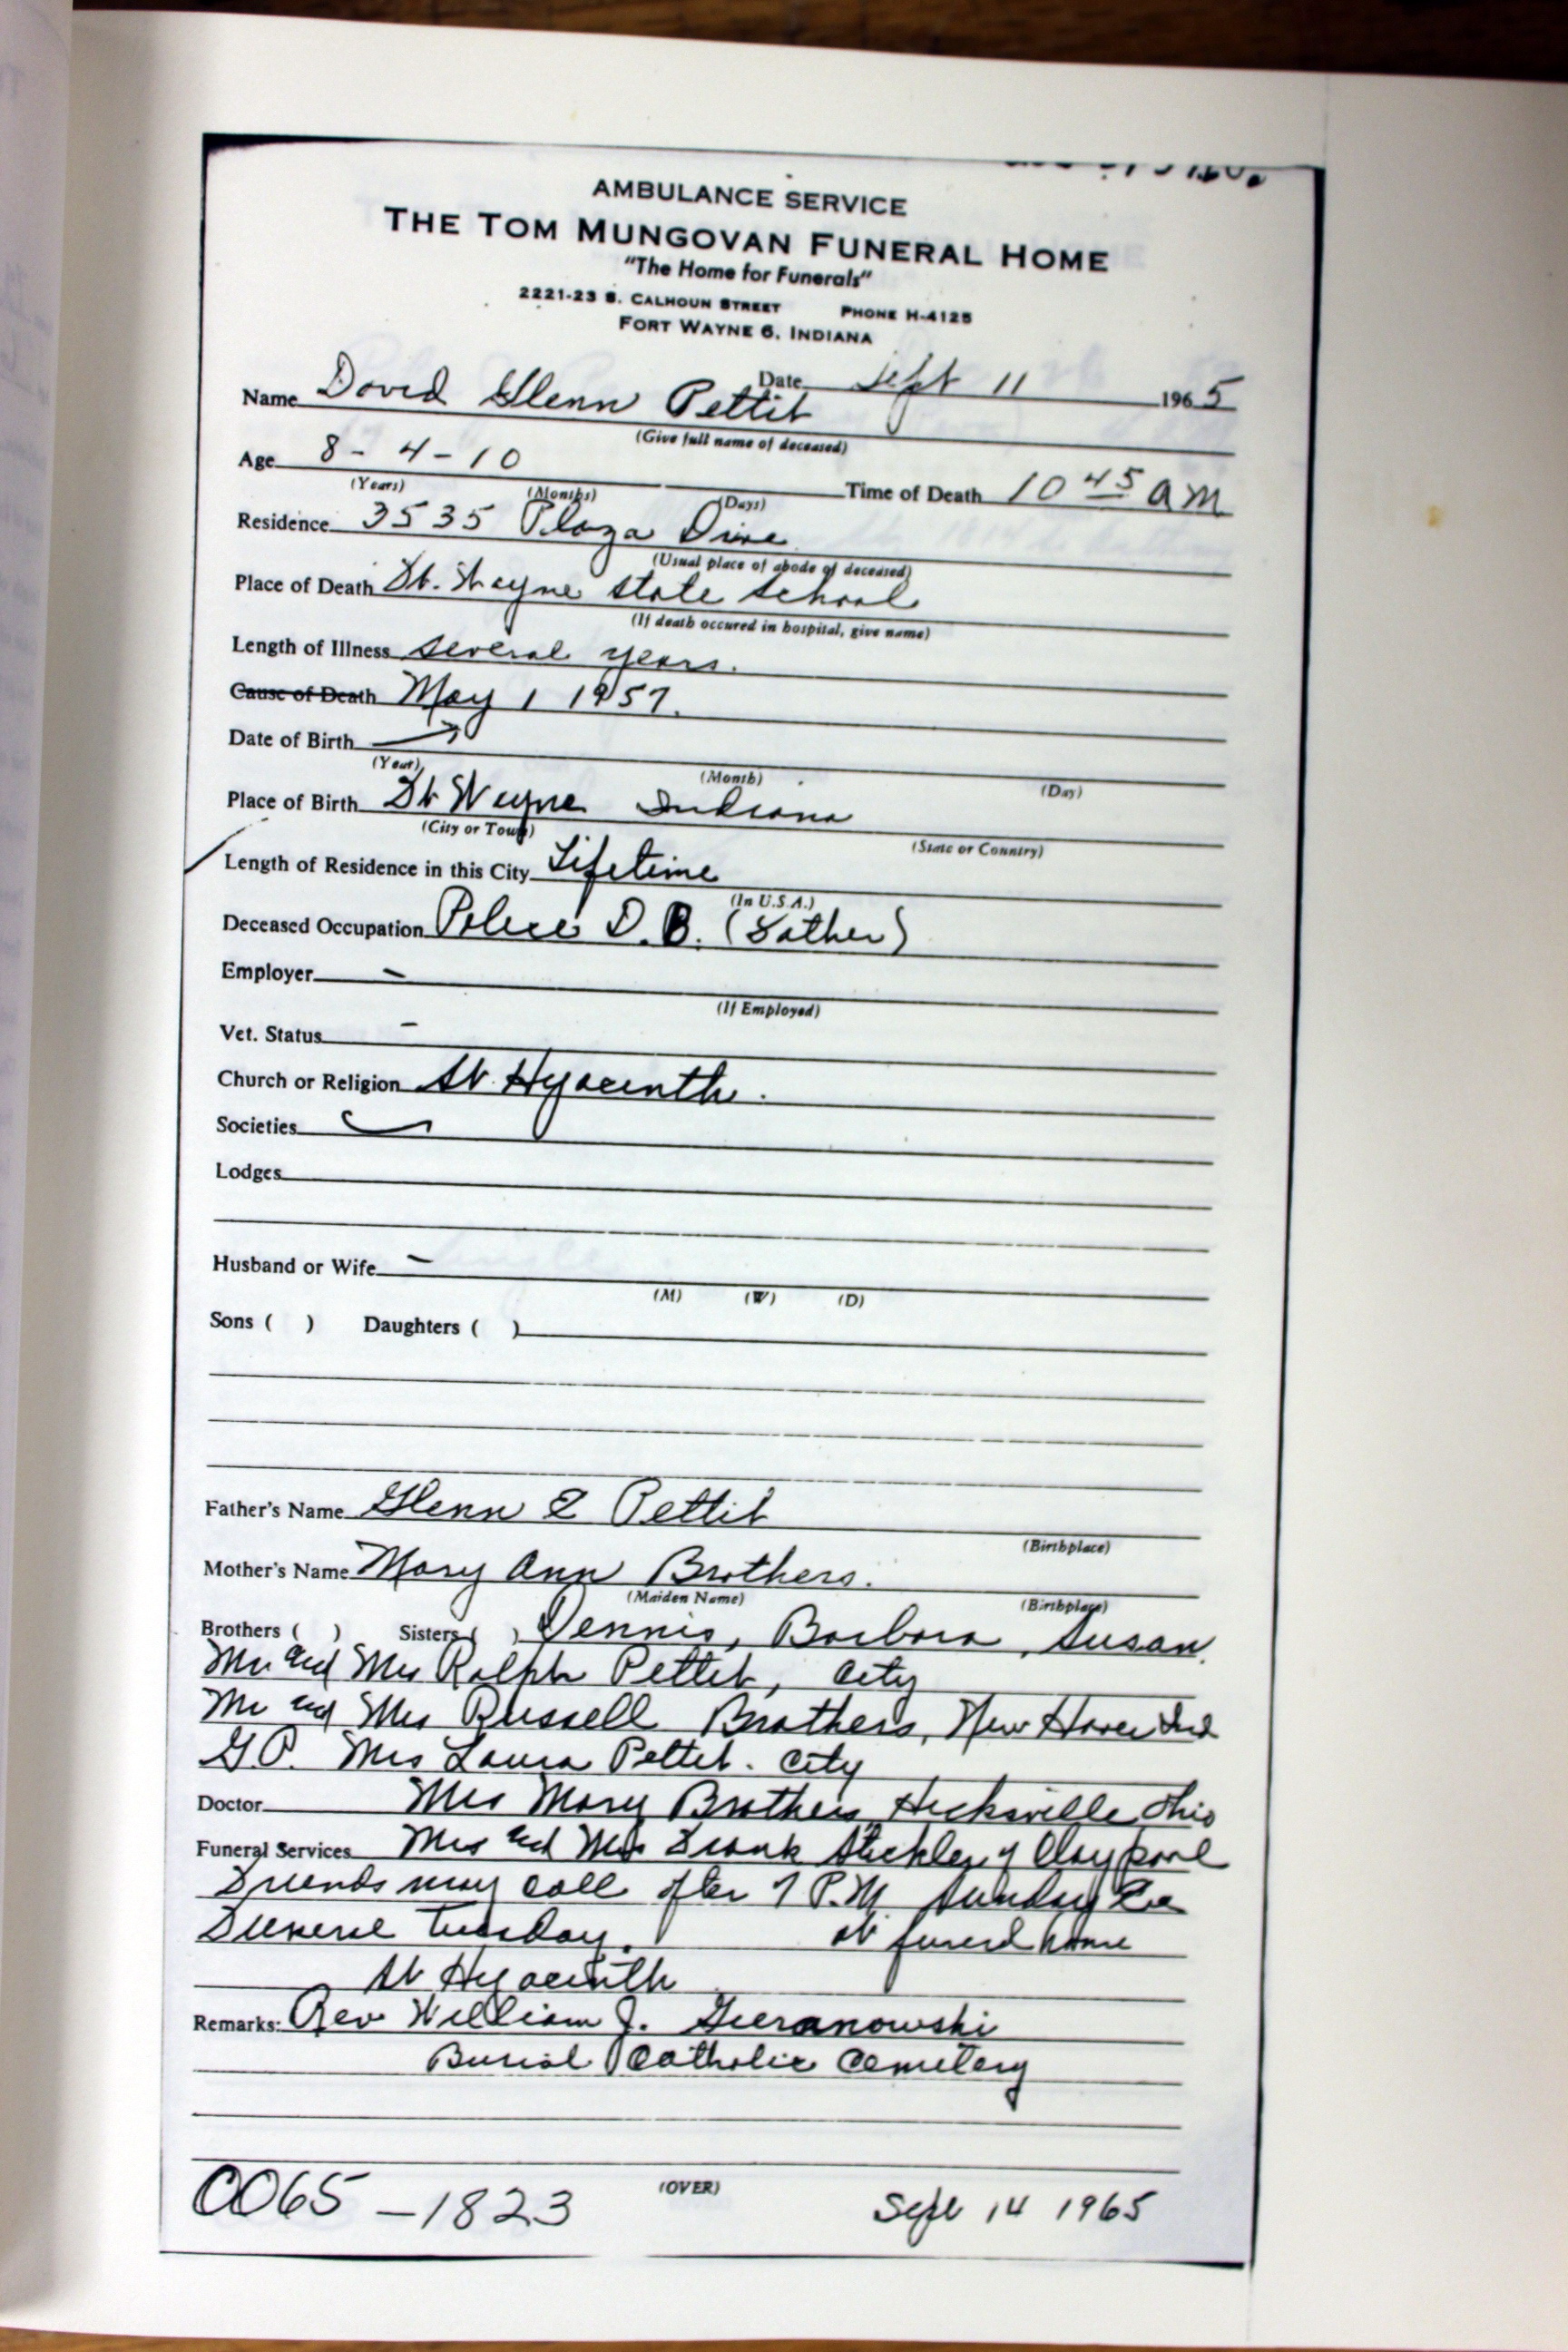 AMBULANCE SERVICE
THE TOM MUNGOVAN FUNERAL HOME
"The Home for Funerals"
2221-23 S. CALHOUN STREET PHONE H-4125
FORT WAYNE 6, INDIANA
Date Sept 11 1965
Name David Glenn Pettit
(Give full name of deceased)
Age 8 - 4 - 10 Time of Death 10 45 am
(Years) (Months) (Days)
Residence 3535 Plaza Drive
(Usual place of abode of deceased)
Place of Death Ft. Wayne State School
(If death occured in hospital, give name)
Length of Illness several years.
Cause of Death May 1 1957.
Date of Birth
(Year) (Month) (Day)
Place of Birth Ft Wayne Indiana
(City or Town) (State or Country)
Length of Residence in this City Lifetime
(In U.S.A.)
Deceased Occupation Police D. B. (Father)
Employer -
(If Employed)
Vet. Status -
Church or Religion St. Hyacinth.
Societies
Lodges
Husband or Wife -
(M) (W) (D)
Sons ( ) Daughters ( )
Father's Name Glenn E Pettit
(Birthplace)
Mother's Name Mary Ann Brothers.
(Maiden Name) (Birthplace)
Brothers ( ) Sisters ( ) Dennis, Barbara, Susan.
Mr and Mrs Ralph Pettit, City
Mr and Mrs Russell Brothers, New Haven Ind
G.P. Mrs Laura Pettit. City
Doctor Mrs Mary Brothers Hicksville Ohio
Funeral Services Mrs and Mrs Frank Stickley of Claypool
Friends may call after 7 P.M. Sunday
Funeral Tuesday. at funeral home
St Hyacinth
Remarks: Rev William J. Gieranowski
Burial Catholic Cemetery
(OVER)
CO65 - 1823 Sept 14 1965